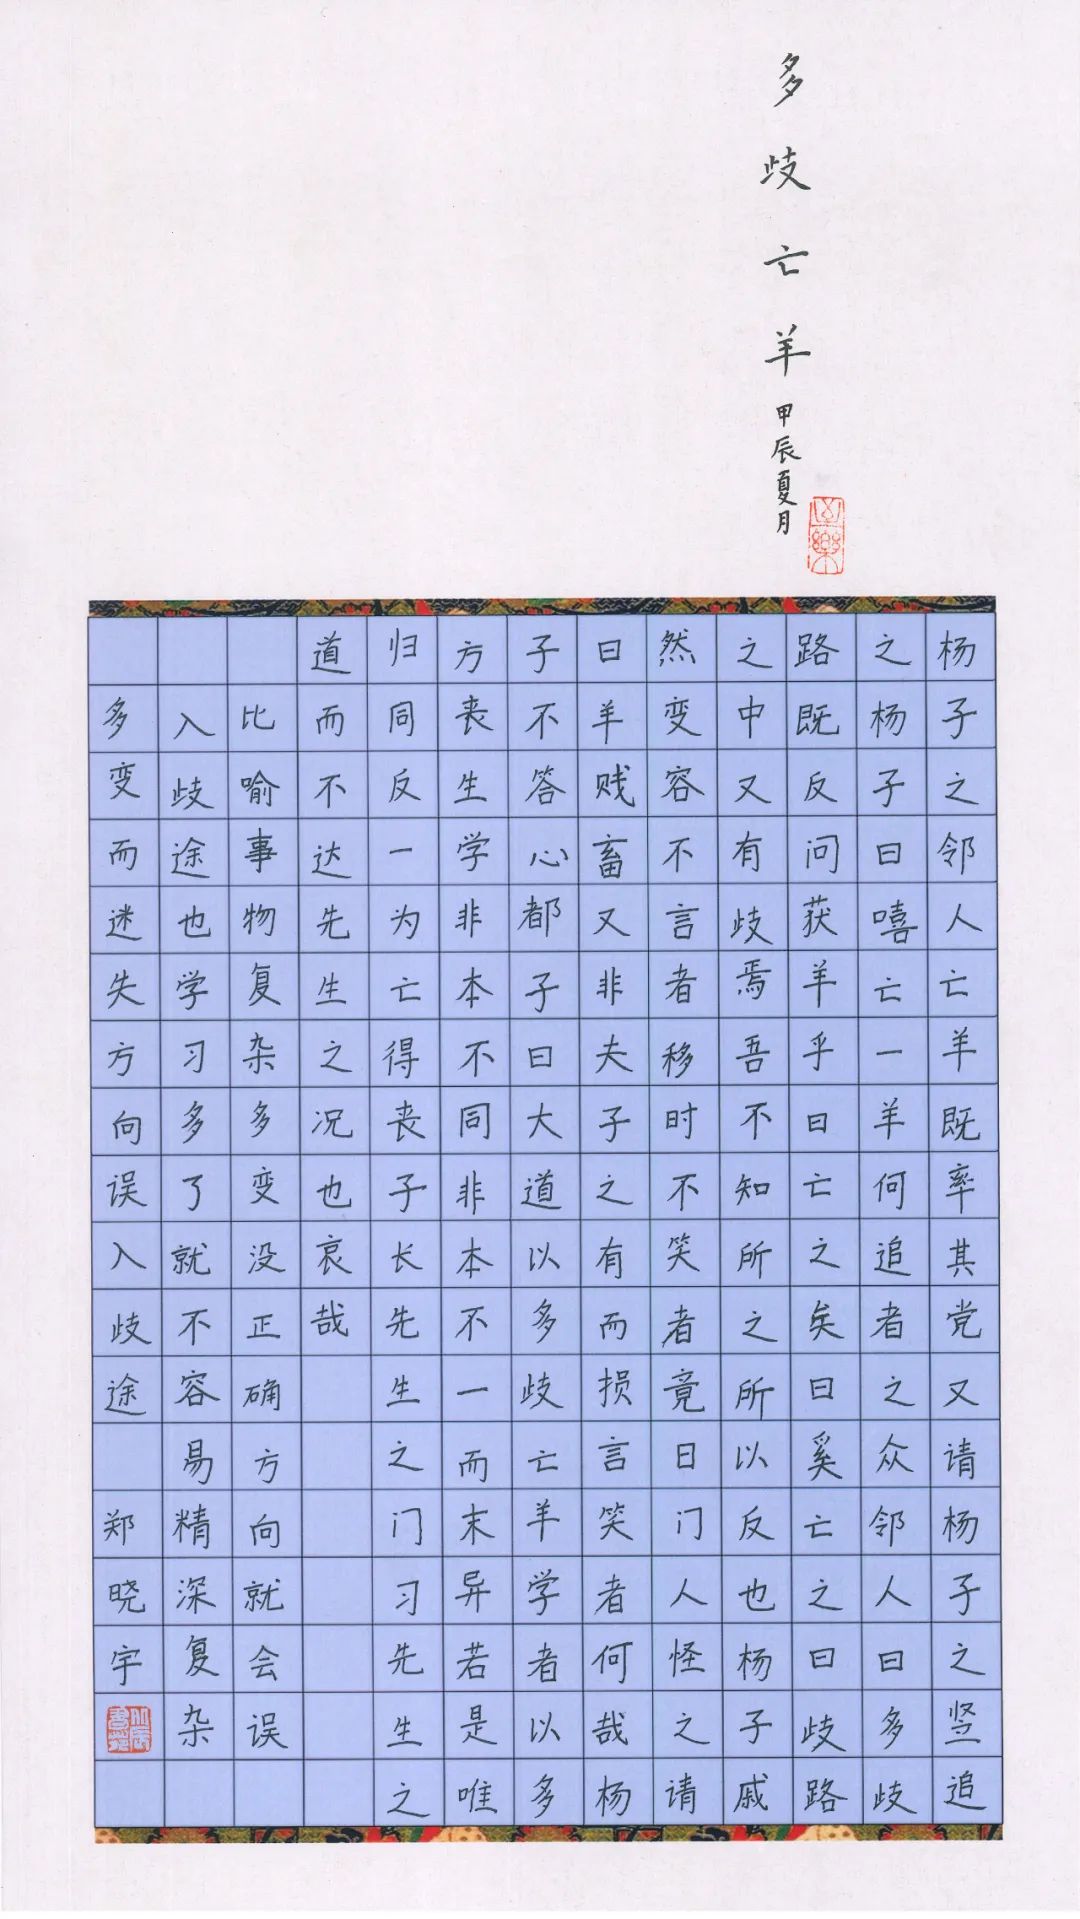 多歧亡羊
甲辰夏月
杨子之邻人亡羊既率其党又请杨子之竖追
之杨子曰嘻亡一羊何追者之众邻人曰多歧
路既反问获羊乎曰亡之矣曰奚亡之曰歧路
之中又有歧焉吾不知所之所以反也杨子戚
然变容不言者移时不笑者竟日门人怪之请
曰羊贱畜又非夫子之有而损言笑者何哉杨
子不答心都子曰大道以多歧亡羊学者以多
方丧生学非本不同非本不一而末异若是唯
归同反一为亡得丧子长先生之门习先生之
道而不达先生之况也哀哉
比喻事物复杂多变没正确方向就会误
入歧途也学习多了就不容易精深复杂
多变而迷失方向误入歧途 郑晓宇